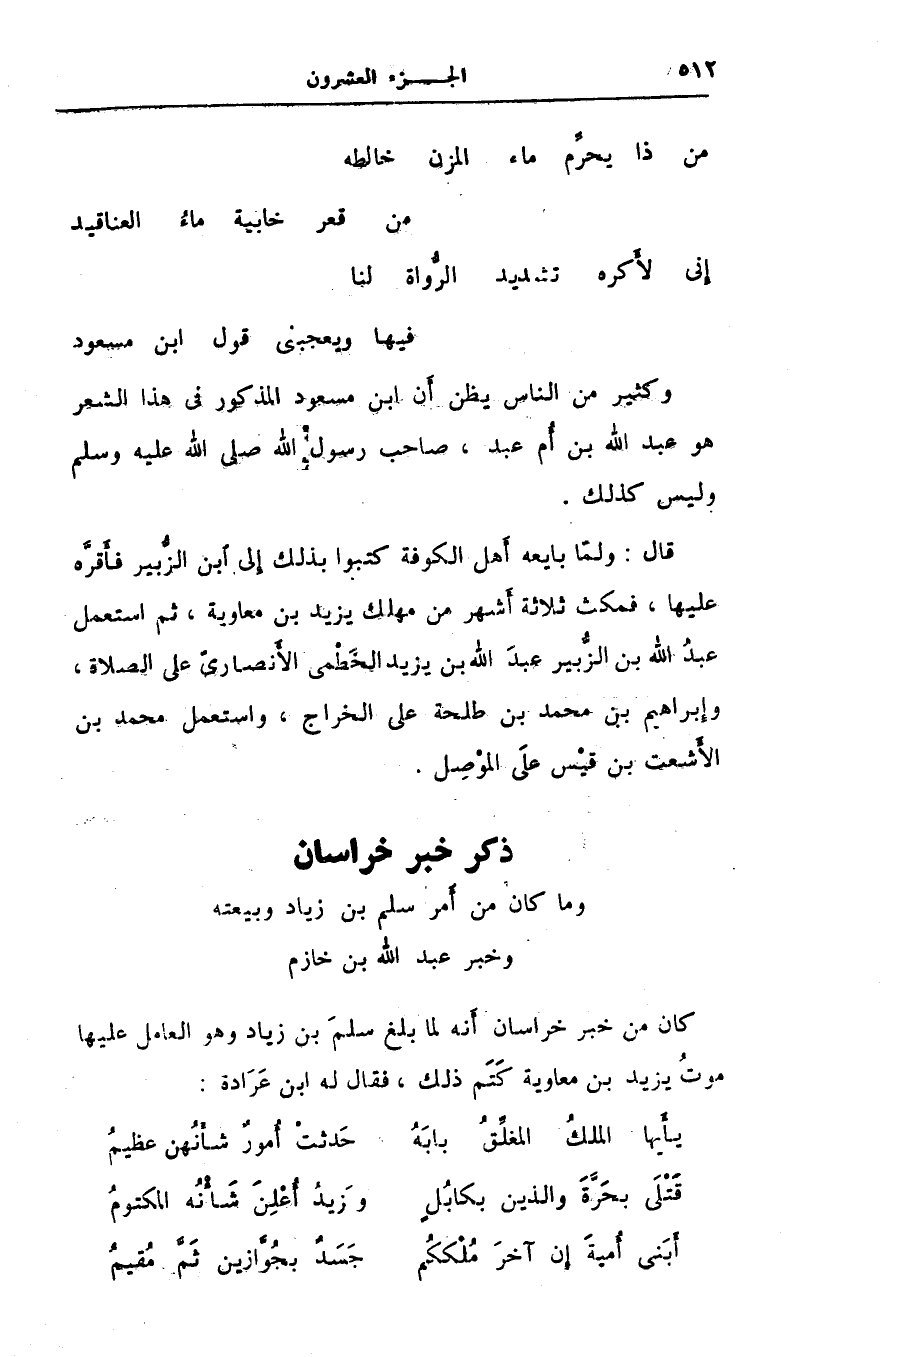 ٥١٢
الجـــزء العشرون
من ذا يحرِّم ماء المزن خالطه
من قعر خابية ماءُ العناقيد
إنى لأَكره تشديد الرُّواة لنا
فيها ويعجبنى قول ابن مسعود
وكثير من الناس يظن أَن ابن مسعود المذكور فى هذا الشعر
هو عبد الله بن أُم عبد ، صاحب رسول الله صلى الله عليه وسلم
وليس كذلك .
قال : ولمّا بايعه أَهل الكوفة كتبوا بذلك إلى ابن الزُّبير فأَقرَّه
عليها ، فمكث ثلاثة أَشهر من مهلك يزيد بن معاوية ، ثم استعمل
عبدُ الله بن الزُّبير عبدَ الله بن يزيد الخَطْمى الأَنصارىّ على الصلاة ،
وإبراهيم بن محمد بن طلحة على الخراج ، واستعمل محمد بن
الأَشعت بن قيْس علَى الموْصِل .
ذكر خبر خراسان
وما كان من أَمر سلم بن زياد وبيعته
وخبر عبد الله بن خازم
كان من خبر خراسان أَنه لما بلغ سلمَ بن زياد وهو العامل عليها
موتُ يزيد بن معاوية كَتَم ذلك ، فقال له ابن عَرَادة :
يأَيها الملكُ المغلِّقُ بابَهُ حَدثتْ أُمورٌ شأْنُهن عظيمُ
قَتْلَى بحَرَّةَ والذين بكابُلٍ ويَزيدُ أُعْلِنَ شَأْنُه المكتومُ
أَبَنى أُميةَ إن آخرَ مُلْككُم جَسَدٌ بحُوَّارين ثَمَّ مُقيمُ